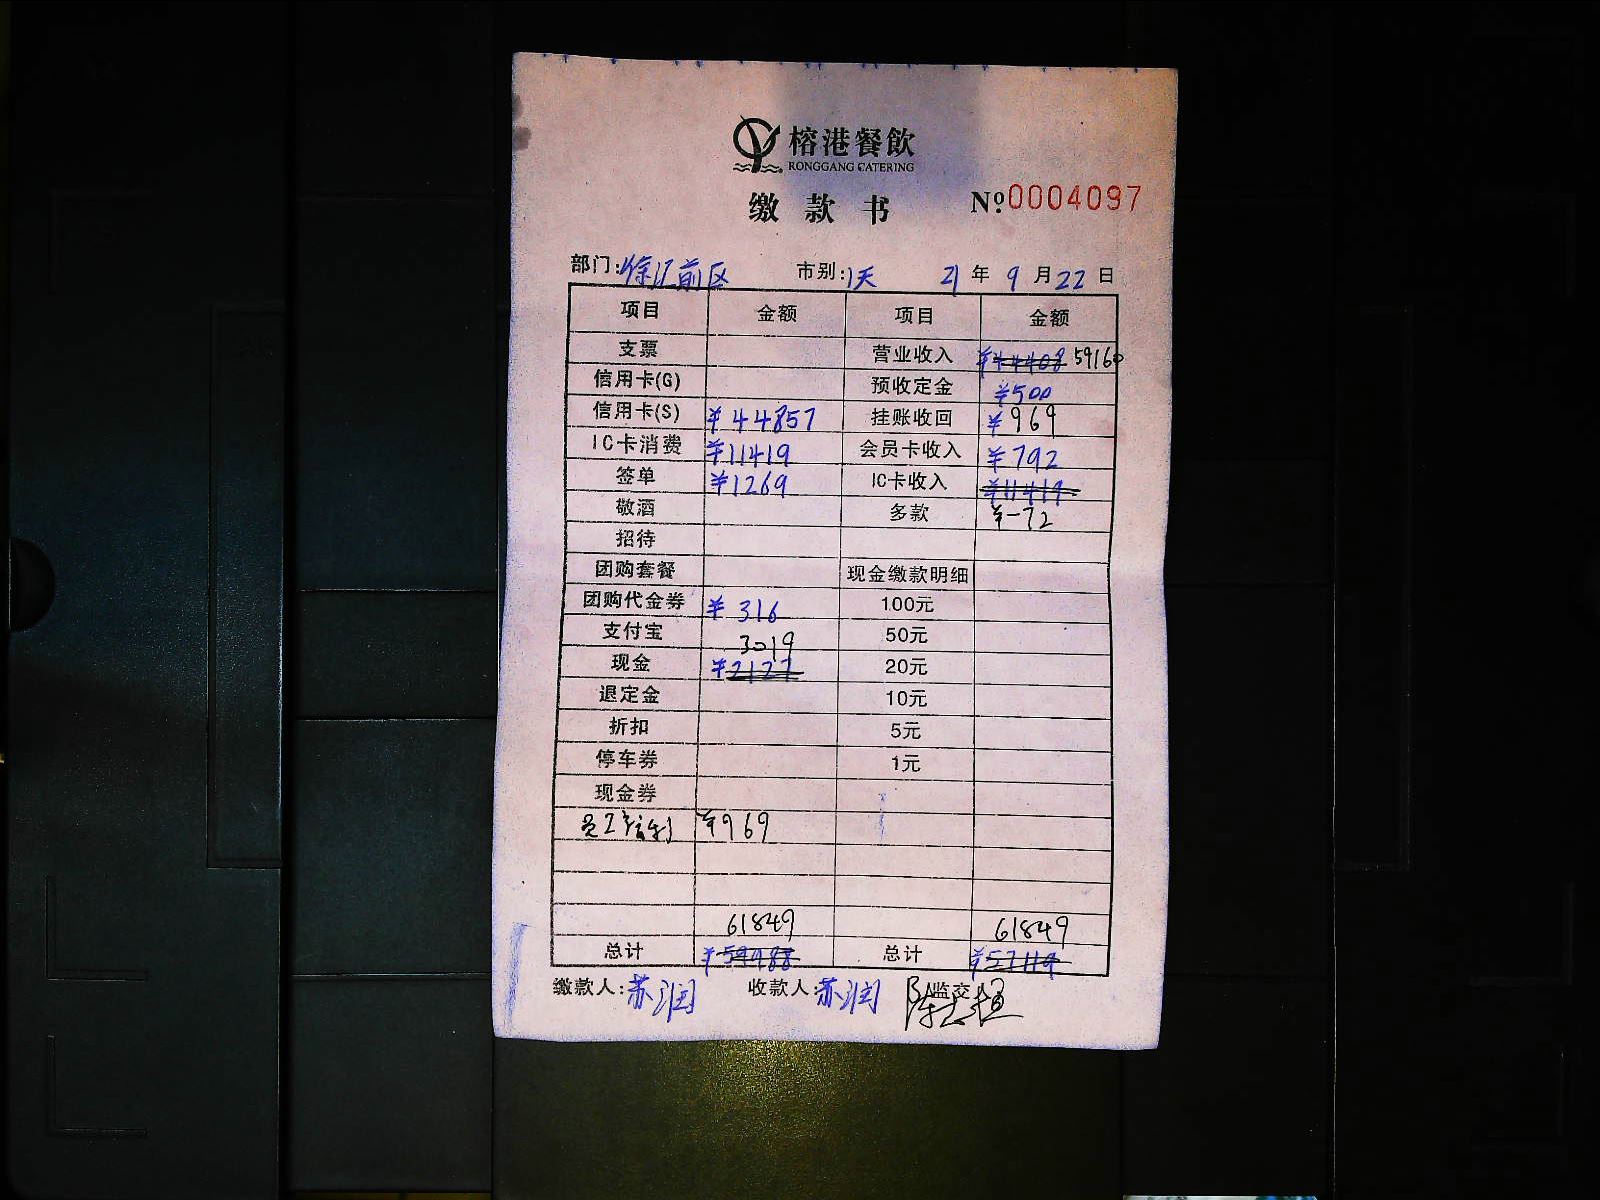 榕港餐飲
RONGGANG CATERING
缴款书 №0004097
部门:徐汇前区 市别:1天 21年9月22日
项目 金额 项目 金额
支票 营业收入 ¥44408 59160
信用卡(G) 预收定金 ¥500
信用卡(S) ¥44857 挂账收回 ¥969
IC卡消费 ¥11419 会员卡收入 ¥792
签单 ¥1269 IC卡收入 ¥11419
敬酒 多款 ¥-72
招待
团购套餐 现金缴款明细
团购代金券 ¥316 100元
支付宝 50元
3019
现金 ¥2127 20元
退定金 10元
折扣 5元
停车券 1元
现金券
员工 ¥969
61849 61849
总计 ¥59988 总计 ¥57119
缴款人:苏润 收款人:苏润 监交